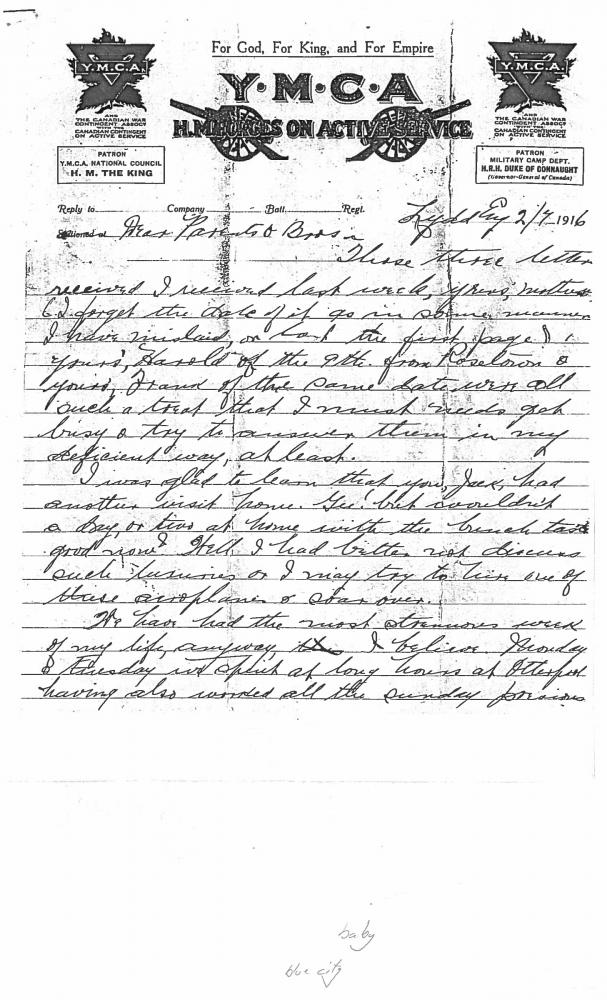 For God, For King, and For Empire
Y·M·C·A
H.M. FORCES ON ACTIVE SERVICE
Y.M.C.A.
AND
THE CANADIAN WAR
CONTINGENT ASSOCN
WITH THE
CANADIAN CONTINGENT
ON ACTIVE SERVICE
PATRON
Y.M.C.A. NATIONAL COUNCIL
H. M. THE KING
Y.M.C.A.
AND
THE CANADIAN WAR
CONTINGENT ASSOCN
WITH THE
CANADIAN CONTINGENT
ON ACTIVE SERVICE
PATRON
MILITARY CAMP DEPT.
H.R.H. DUKE OF CONNAUGHT
(Governor-General of Canada)
Reply to Company Batt. Regt.
Lydd Eng 2/7 1916
Stationed at Dear Parents & Bros:
Those three letters
received I received last week, yours, mother
(I forget the date of it as in some manner
I have mislaid, or lost the first page)
yours, Harold of the 9th. from Rosetown &
yours, Frank of the same date were all
such a treat that I must needs get
busy & try to answer them in my
deficient way, at least.
I was glad to learn that you, Jack, had
another visit home. Gee! but wouldn't
a day or two at home with the bunch taste
good now? Well I had better not discuss
such luxuries or I may try to hire one of
these aeroplanes & soar over.
We have had the most strenuous week
of my life, anyway I believe. Monday
& Tuesday we spent at long hours at Otterpool
having also worked all the Sunday previous
baby
blue city